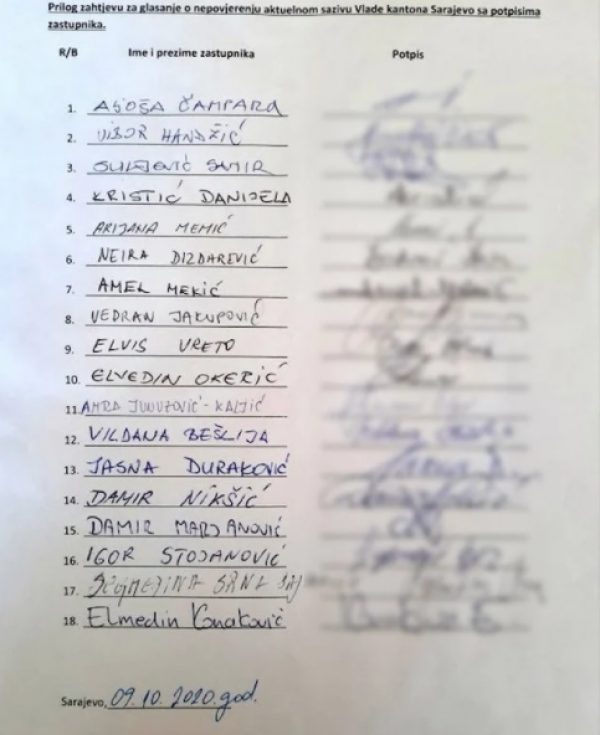 Prilog zahtjevu za glasanje o nepovjerenju aktuelnom sazivu Vlade kantona Sarajevo sa potpisima
zastupnika.
R/B Ime i prezime zastupnika Potpis
1. ČAMPARA
2. VIBOR HANDŽIĆ
3. SULJEVIĆ SAMIR
4. KRISTIĆ DANIJELA
5. ARIJANA MEMIĆ
6. NEIRA DIZDAREVIĆ
7. AMEL MEKIĆ
8. VEDRAN JAKUPOVIĆ
9. ELVIS VRETO
10. ELVEDIN OKERIĆ
11. AMRA JUNUZOVIĆ-KALJIĆ
12. VILDANA BEŠLIJA
13. JASNA DURAKOVIĆ
14. DAMIR NIKŠIĆ
15. DAMIR MARJANOVIĆ
16. IGOR STOJANOVIĆ
17. SEGMEDINA
18. Elmedin Konaković
Sarajevo, 09.10.2020.god.